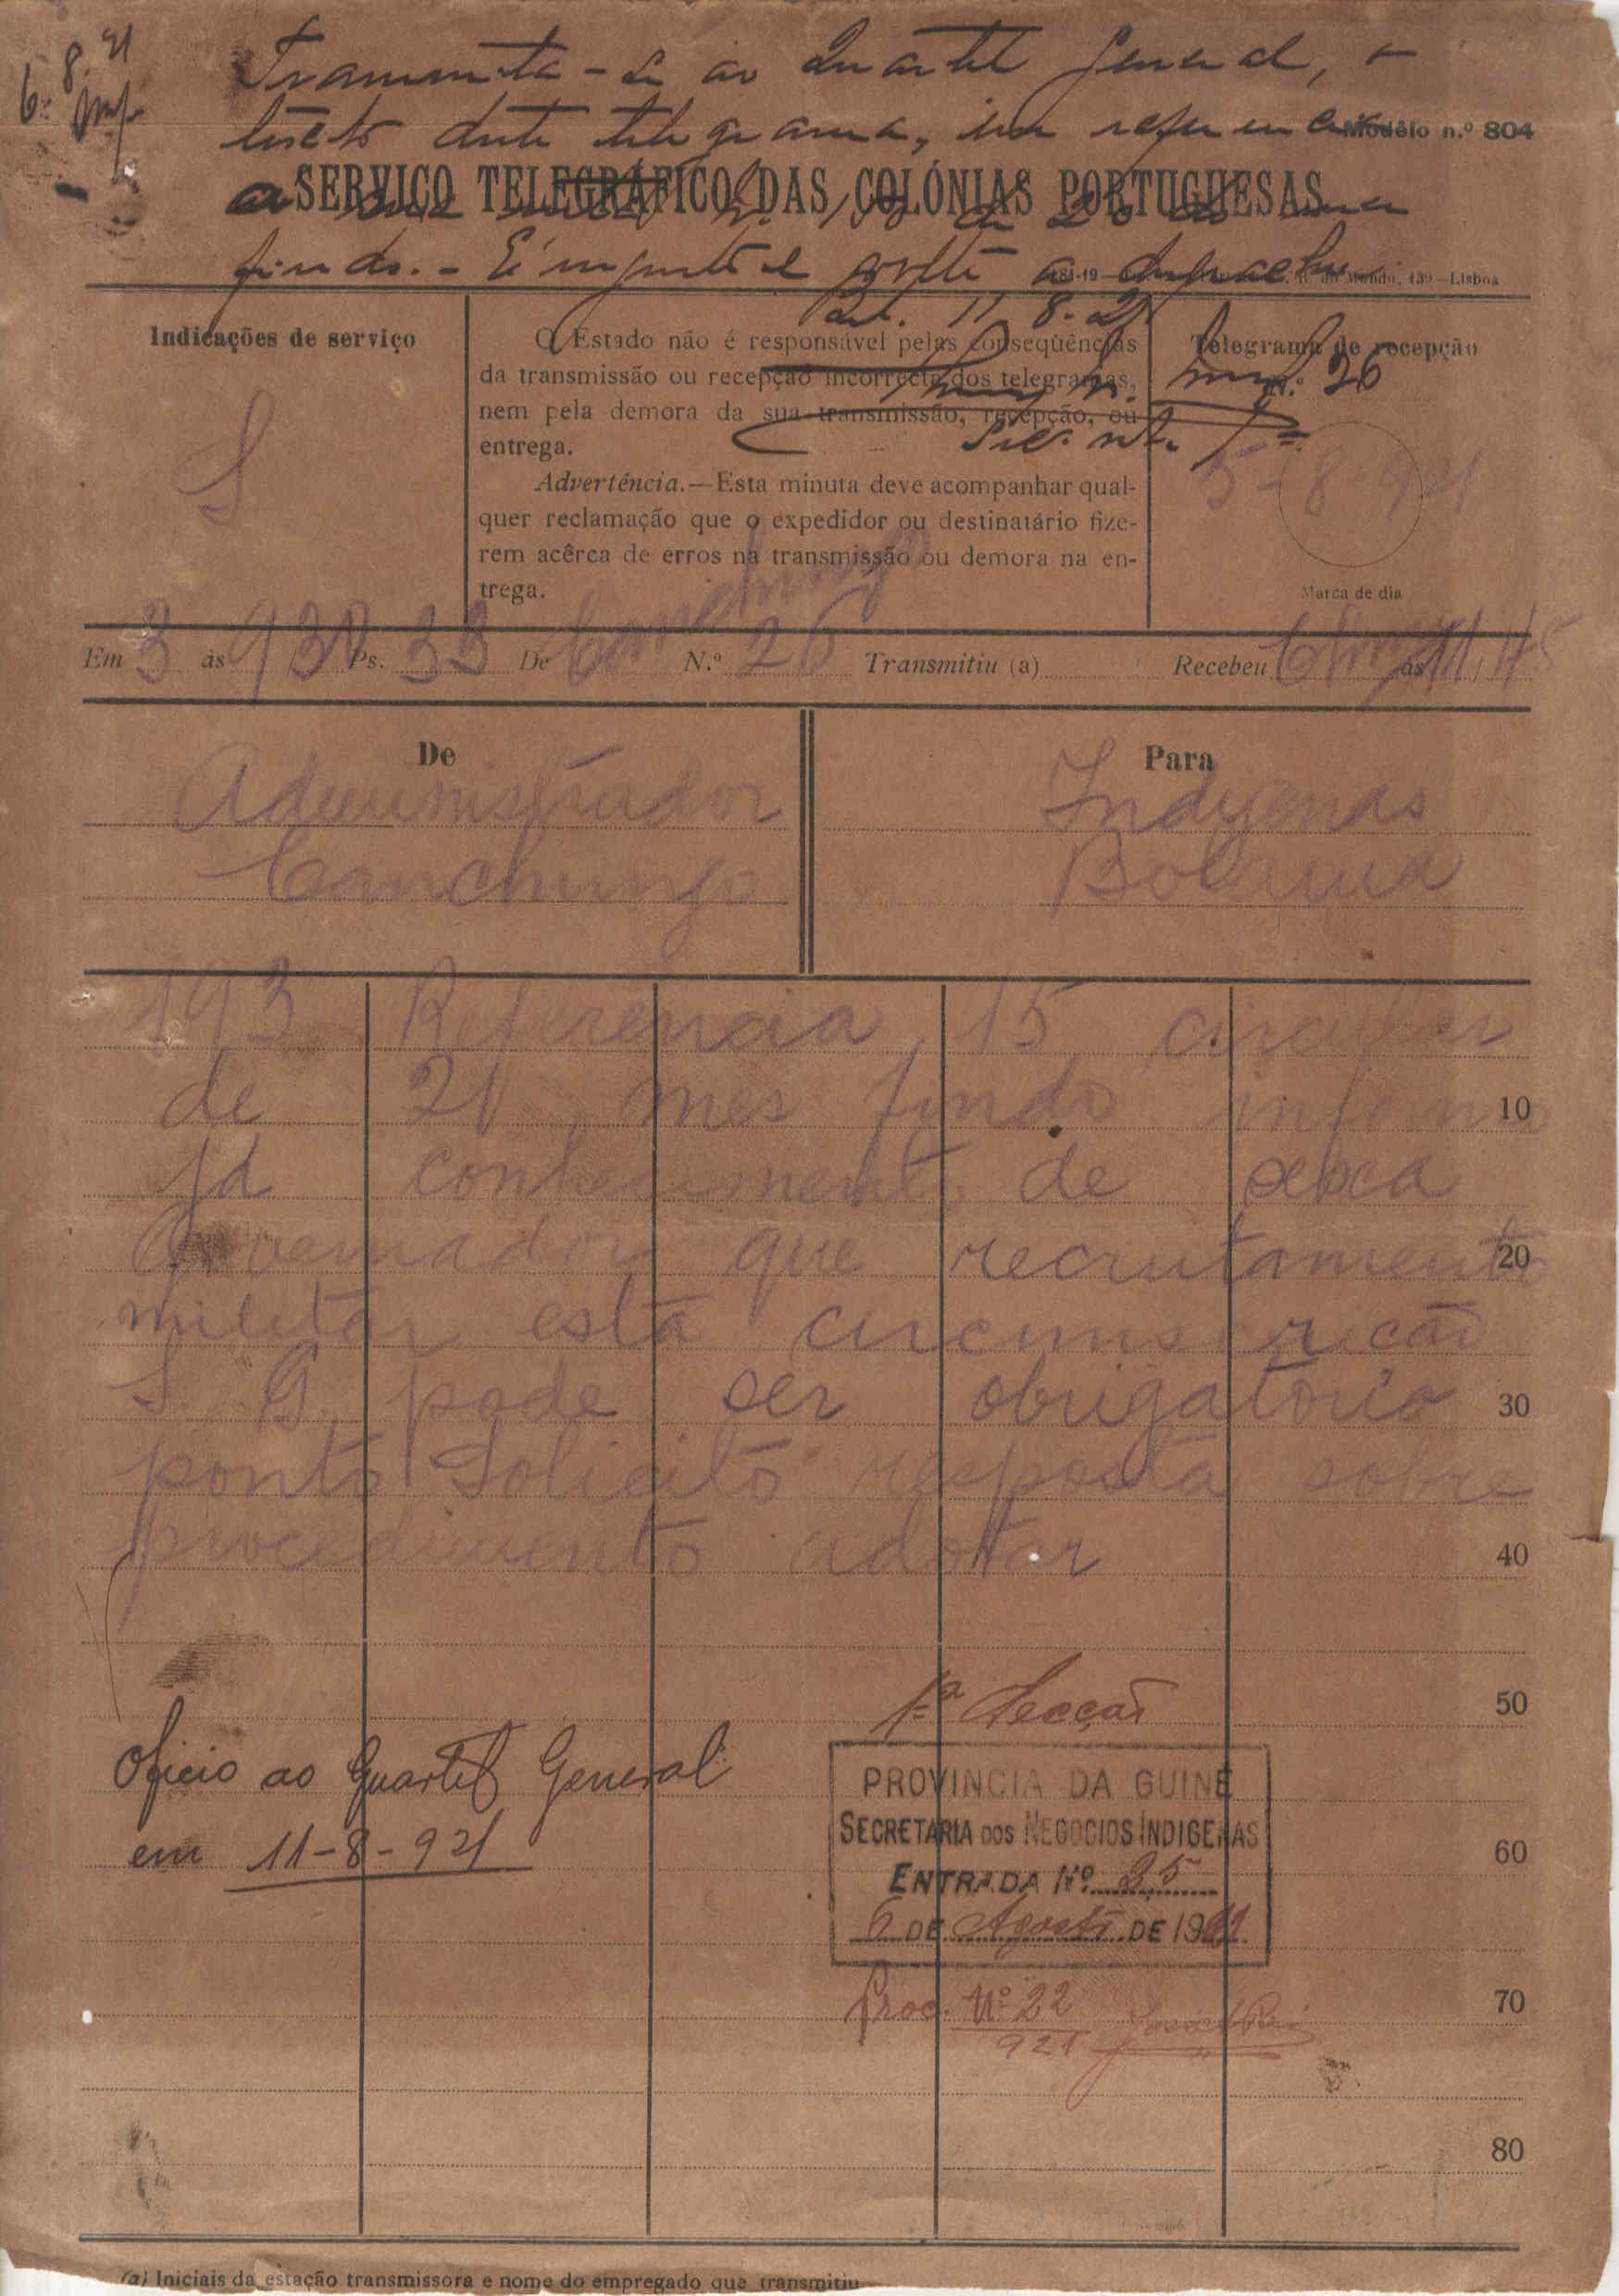 6-8-21
Transmita-se ao Quartel General, o
texto deste telegrama, em referencia
Modêlo n.º 804
SERVIÇO TELEGRÁFICO DAS COLÓNIAS PORTUGUESAS
a sua nota n.º de 20 do mez
findo. -
139—Lisboa
11-8-21
Indicações de serviço
S
O Estado não é responsável pelas conseqüências
da transmissão ou recepção incorrecta dos telegramas,
nem pela demora da sua transmissão, recepção, ou
entrega.
Advertência.—Esta minuta deve acompanhar qual-
quer reclamação que o expedidor ou destinatário fize-
rem acêrca de erros na transmissão ou demora na en-
trega.
Telegrama de recepção
N.º 26
5-8-921
Marca de dia
Em 3 às 930 Ps. 33 De Canchungo N.º 26 Transmitiu (a) Recebeu às 11,45
De
Administrador
Canchungo
Para
Indigenas
Bolama
193 Referencia 15 circular
de 21 mes findo informo
10
já conhecimento de sexa
Governador que recrutamento
20
militar esta circunscricão
S. G. pode ser obrigatorio
30
ponto Solicito resposta sobre
procedimento adotar
40
50
60
70
80
1ª Secção
Oficio ao Quartel General
em 11-8-921
PROVINCIA DA GUINÉ
SECRETARIA DOS NEGOCIOS INDIGENAS
ENTRADA Nº 25
6 DE Agosto DE 1921
Proc. Nº 22
921
(a) Iniciais da estação transmissora e nome do empregado que transmitiu